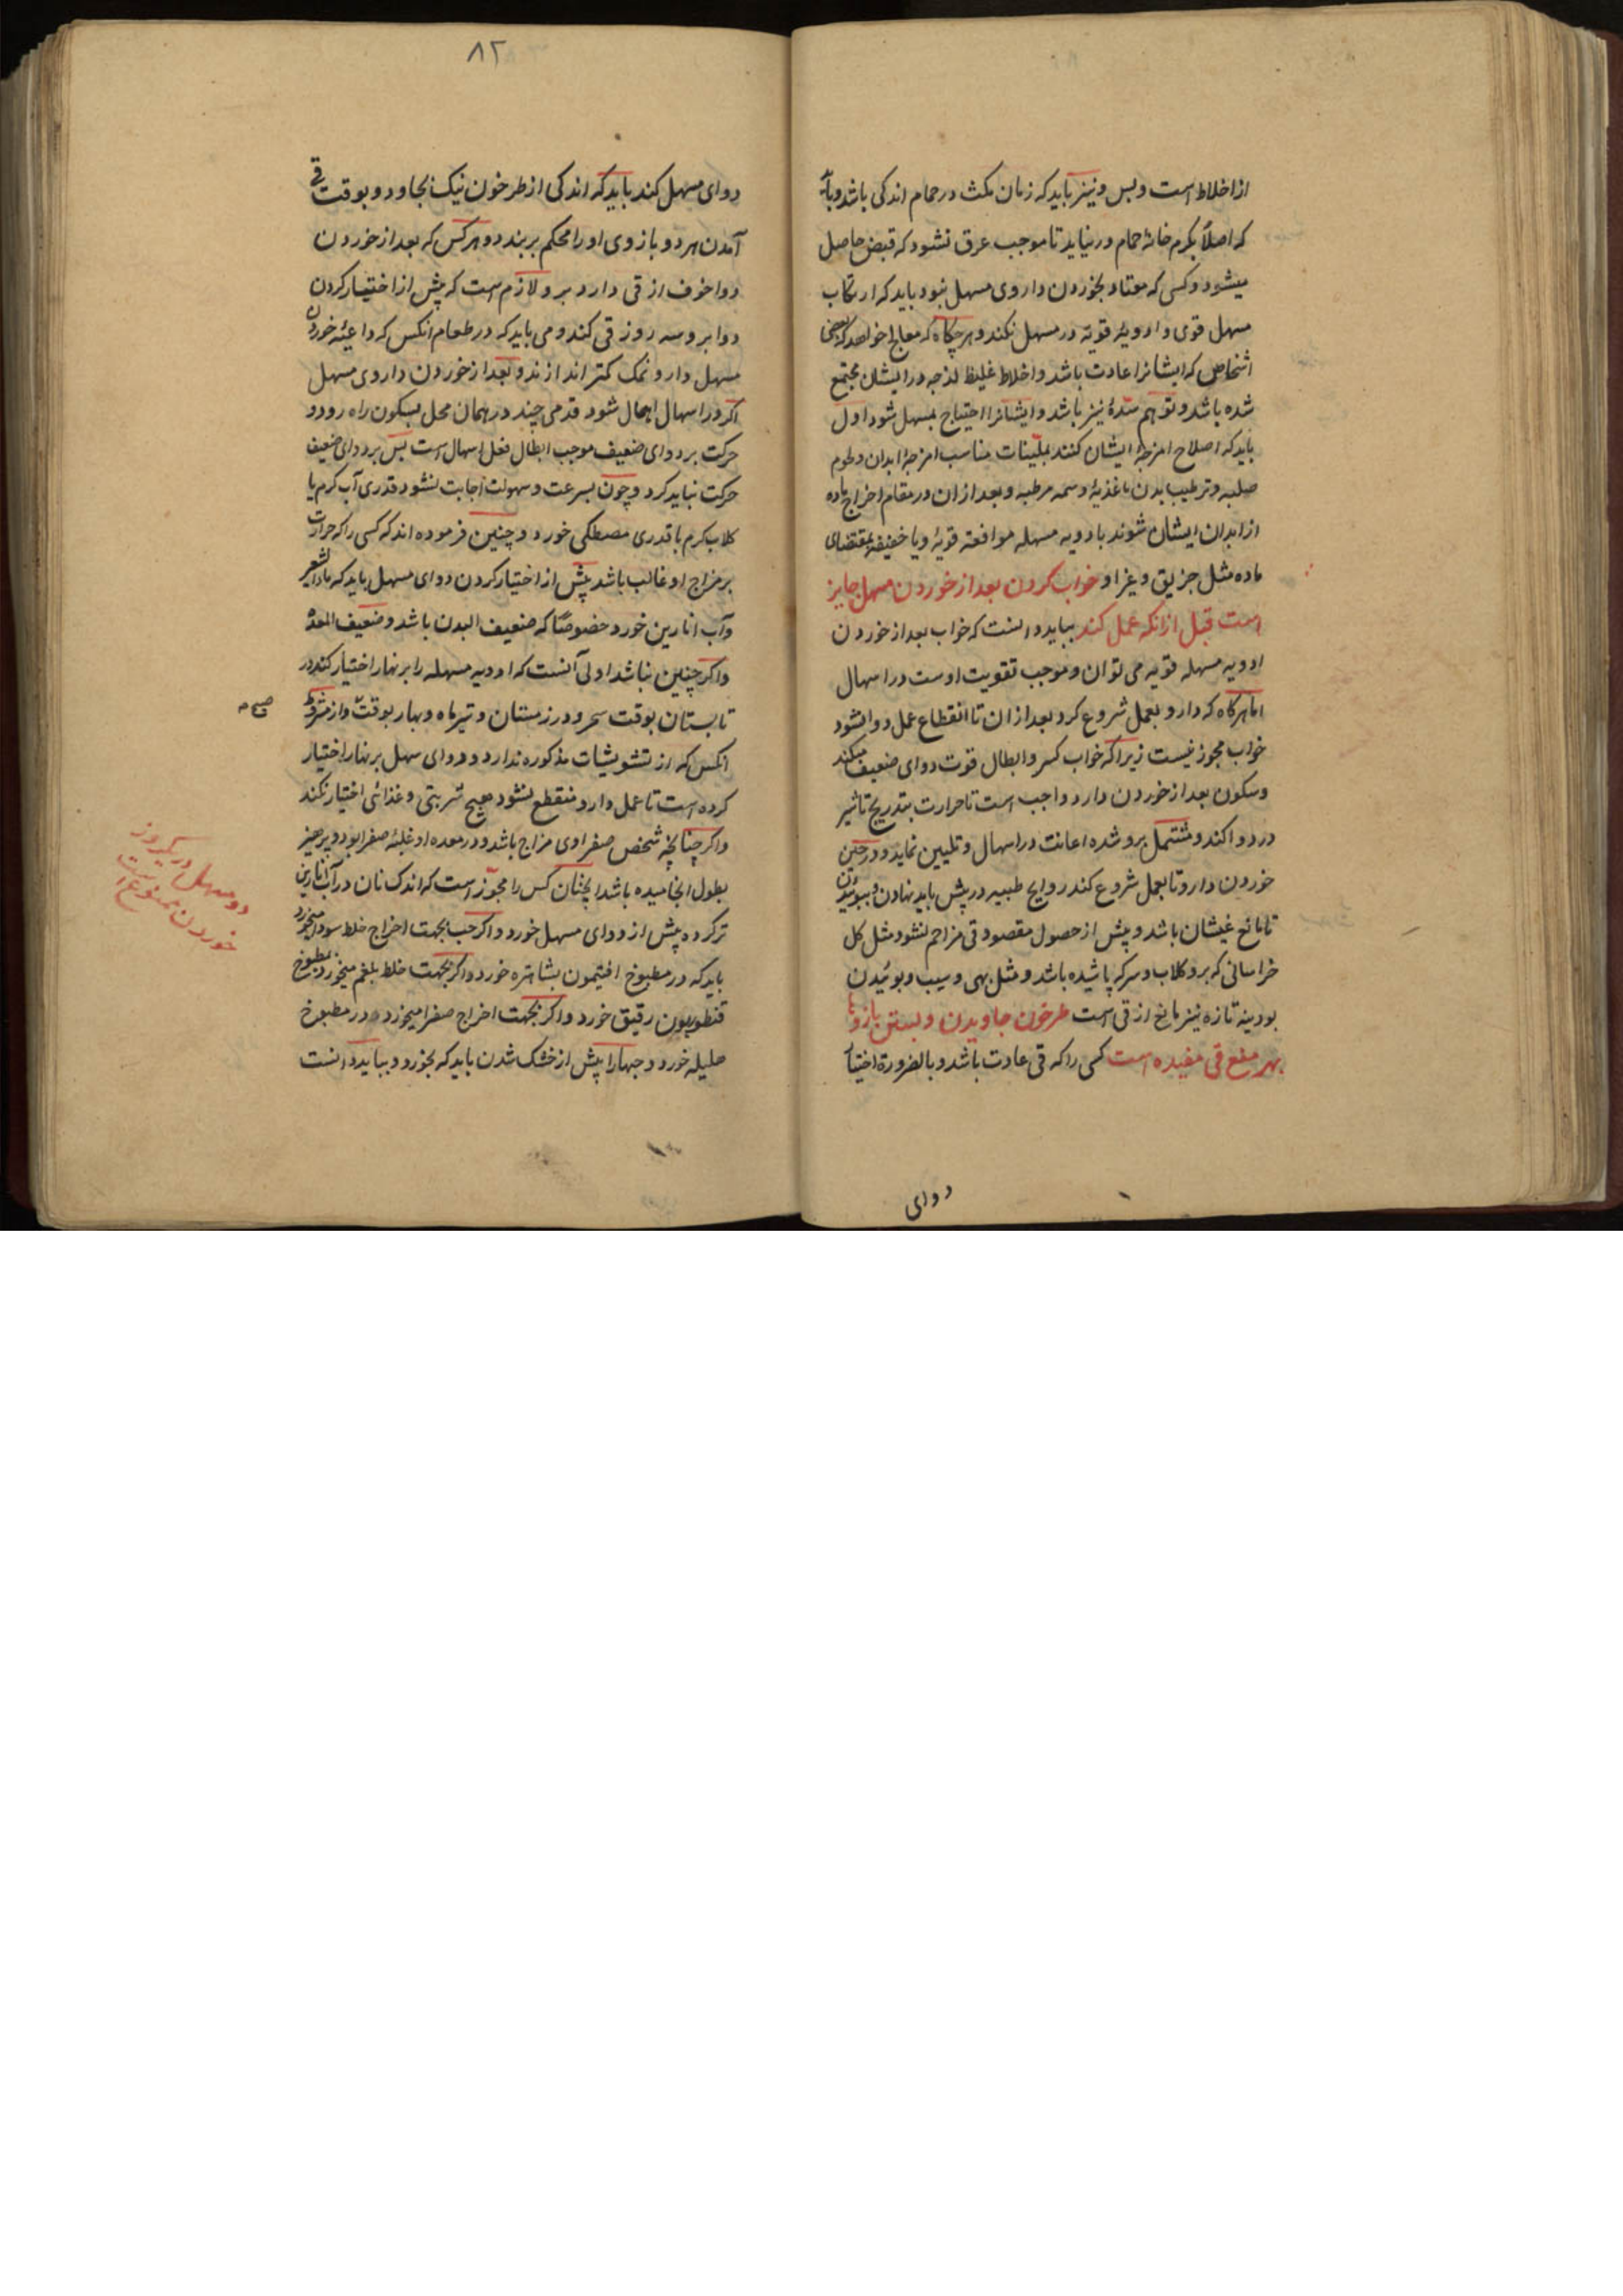 از اخلاط است و بس و نیز باید که زمان مکث در حمام اندکی باشد و باید
که اصلاً بکرم خانهٔ حمام در نیاید تا موجب عرق نشود که قبض حاصل
میشود و کسی که معتاد بخوردن داروی مسهل نبود باید که ارتکاب
مسهل قوی و ادویهٔ قویه در مسهل نکند و هرچکاه که معالج خواهد که بعضی
اشخاص که ایشانرا عادت باشد و اخلاط غلیظ لزجه در ایشان مجتمع
شده باشد و توهم سدهٔ نیز باشد و ایشانرا احتیاج بمسهل شود اول
باید که اصلاح امزجهٔ ایشان کنند بملینات مناسب امزجهٔ ابدان و لحوم
صلبه و ترطیب بدن باغذیهٔ دسمه مرطبه و بعد ازان در مقام اخراج ماده
از ابدان ایشان شوند بادویه مسهله موافقه قویهٔ و یا خفیفه بمقتضای
ماده مثل جزیق و غیر او خواب کردن بعد از خوردن مسهل جایز
است قبل ازانکه عمل کند بباید دانست که خواب بعد از خوردن
ادویه مسهله قویه می توان و موجب تقویت اوست در اسهال
اما هرکاه که دارو بعمل شروع کرد بعد ازان تا انقطاع عمل دوا نشود
خواب مجوز نیست زیرا که خواب کسر و ابطال قوت دوای ضعیف میکند
و سکون بعد از خوردن دارو واجب است تا حرارت بتدریج تاثیر
در دوا کند و مشتمل برو شده اعانت در اسهال و تلیین نماید و در حین
خوردن دارو تا بعمل شروع کند روایح طیبه در پیش باید نهادن و بوئیدن
تا مانع غیشان باشد و پیش از حصول مقصود قی مزاحم نشود مثل کل
خراسانی که برو کلاب و سرکه پاشیده باشد و مثل بهی و سیب و بوئیدن
بودینه تازه نیز مانع از قی است طرخون جاویدن و بستن بازوها
بهر منع قی مفیده است کسی را که قی عادت باشد و بالضرورة اختیار
دوای
۸۲
دوای مسهل کند باید که اندکی از طرخون نیک بخاود و بوقت قی
آمدن هر دو بازوی او را محکم بربندد و هر کس که بعد از خوردن
دوا خوف از قی دارد برو لازم است که پیش از اختیار کردن
دوا بدو سه روز قی کند و می باید که در طعام انکس که داعیهٔ خوردن
مسهل دارد نمک کمتر اندازند و بعد از خوردن داروی مسهل
اکر در اسهال اهمال شود قدمی چند در همان محل بسکون راه رود و
حرکت بر دوای ضعیف موجب ابطال فعل اسهال است پس بر دوای ضعیف
حرکت نباید کرد و چون بسرعت و سهولت اجابت نشود قدری آب کرم یا
کلاب کرم با قدری مصطکی خورد و چنین فرموده اند که کسی را که حرارت
بر مزاج او غالب باشد پیش از اختیار کردن دوای مسهل باید که ماء الشعیر
و آب انارین خورد خصوصًا که ضعیف البدن باشد و ضعیف المعده
و اکر چنین نباشد اولی آنست که ادویه مسهله را بر نهار اختیار کند در
تابستان بوقت سحر و در زمستان و تیرماه و بهار بوقت و از شروط
صباح
انکس که از تشویشات مذکوره ندارد و دوای مسهل بر نهار اختیار
کرده است تا عمل دارو منقطع نشود هیچ شربتی و غذائی اختیار نکند
و اکر چنانچه شخص صفراوی مزاج باشد و در معده او غلبهٔ صفرا بود و پرهیز
بطول انجامیده باشد اینچنان کس را مجوّز است که اندک نان در آب انارین
تر کرده پیش از دوای مسهل خورد و اکر حب بجهت اخراج خلط سودا میخورد
باید که در مطبوخ افتیمون بشاهتره خورد و اکر بجهت خلط بلغم میخورد بمطبوخ
قنطوریون رقیق خورد و اکر بجهت اخراج صفرا میخورد در مطبوخ
هلیله خورد و حبها را پیش از خشک شدن باید که بخورد و بباید دانست
دو مسهل در یکروز
خوردن ممنوع است